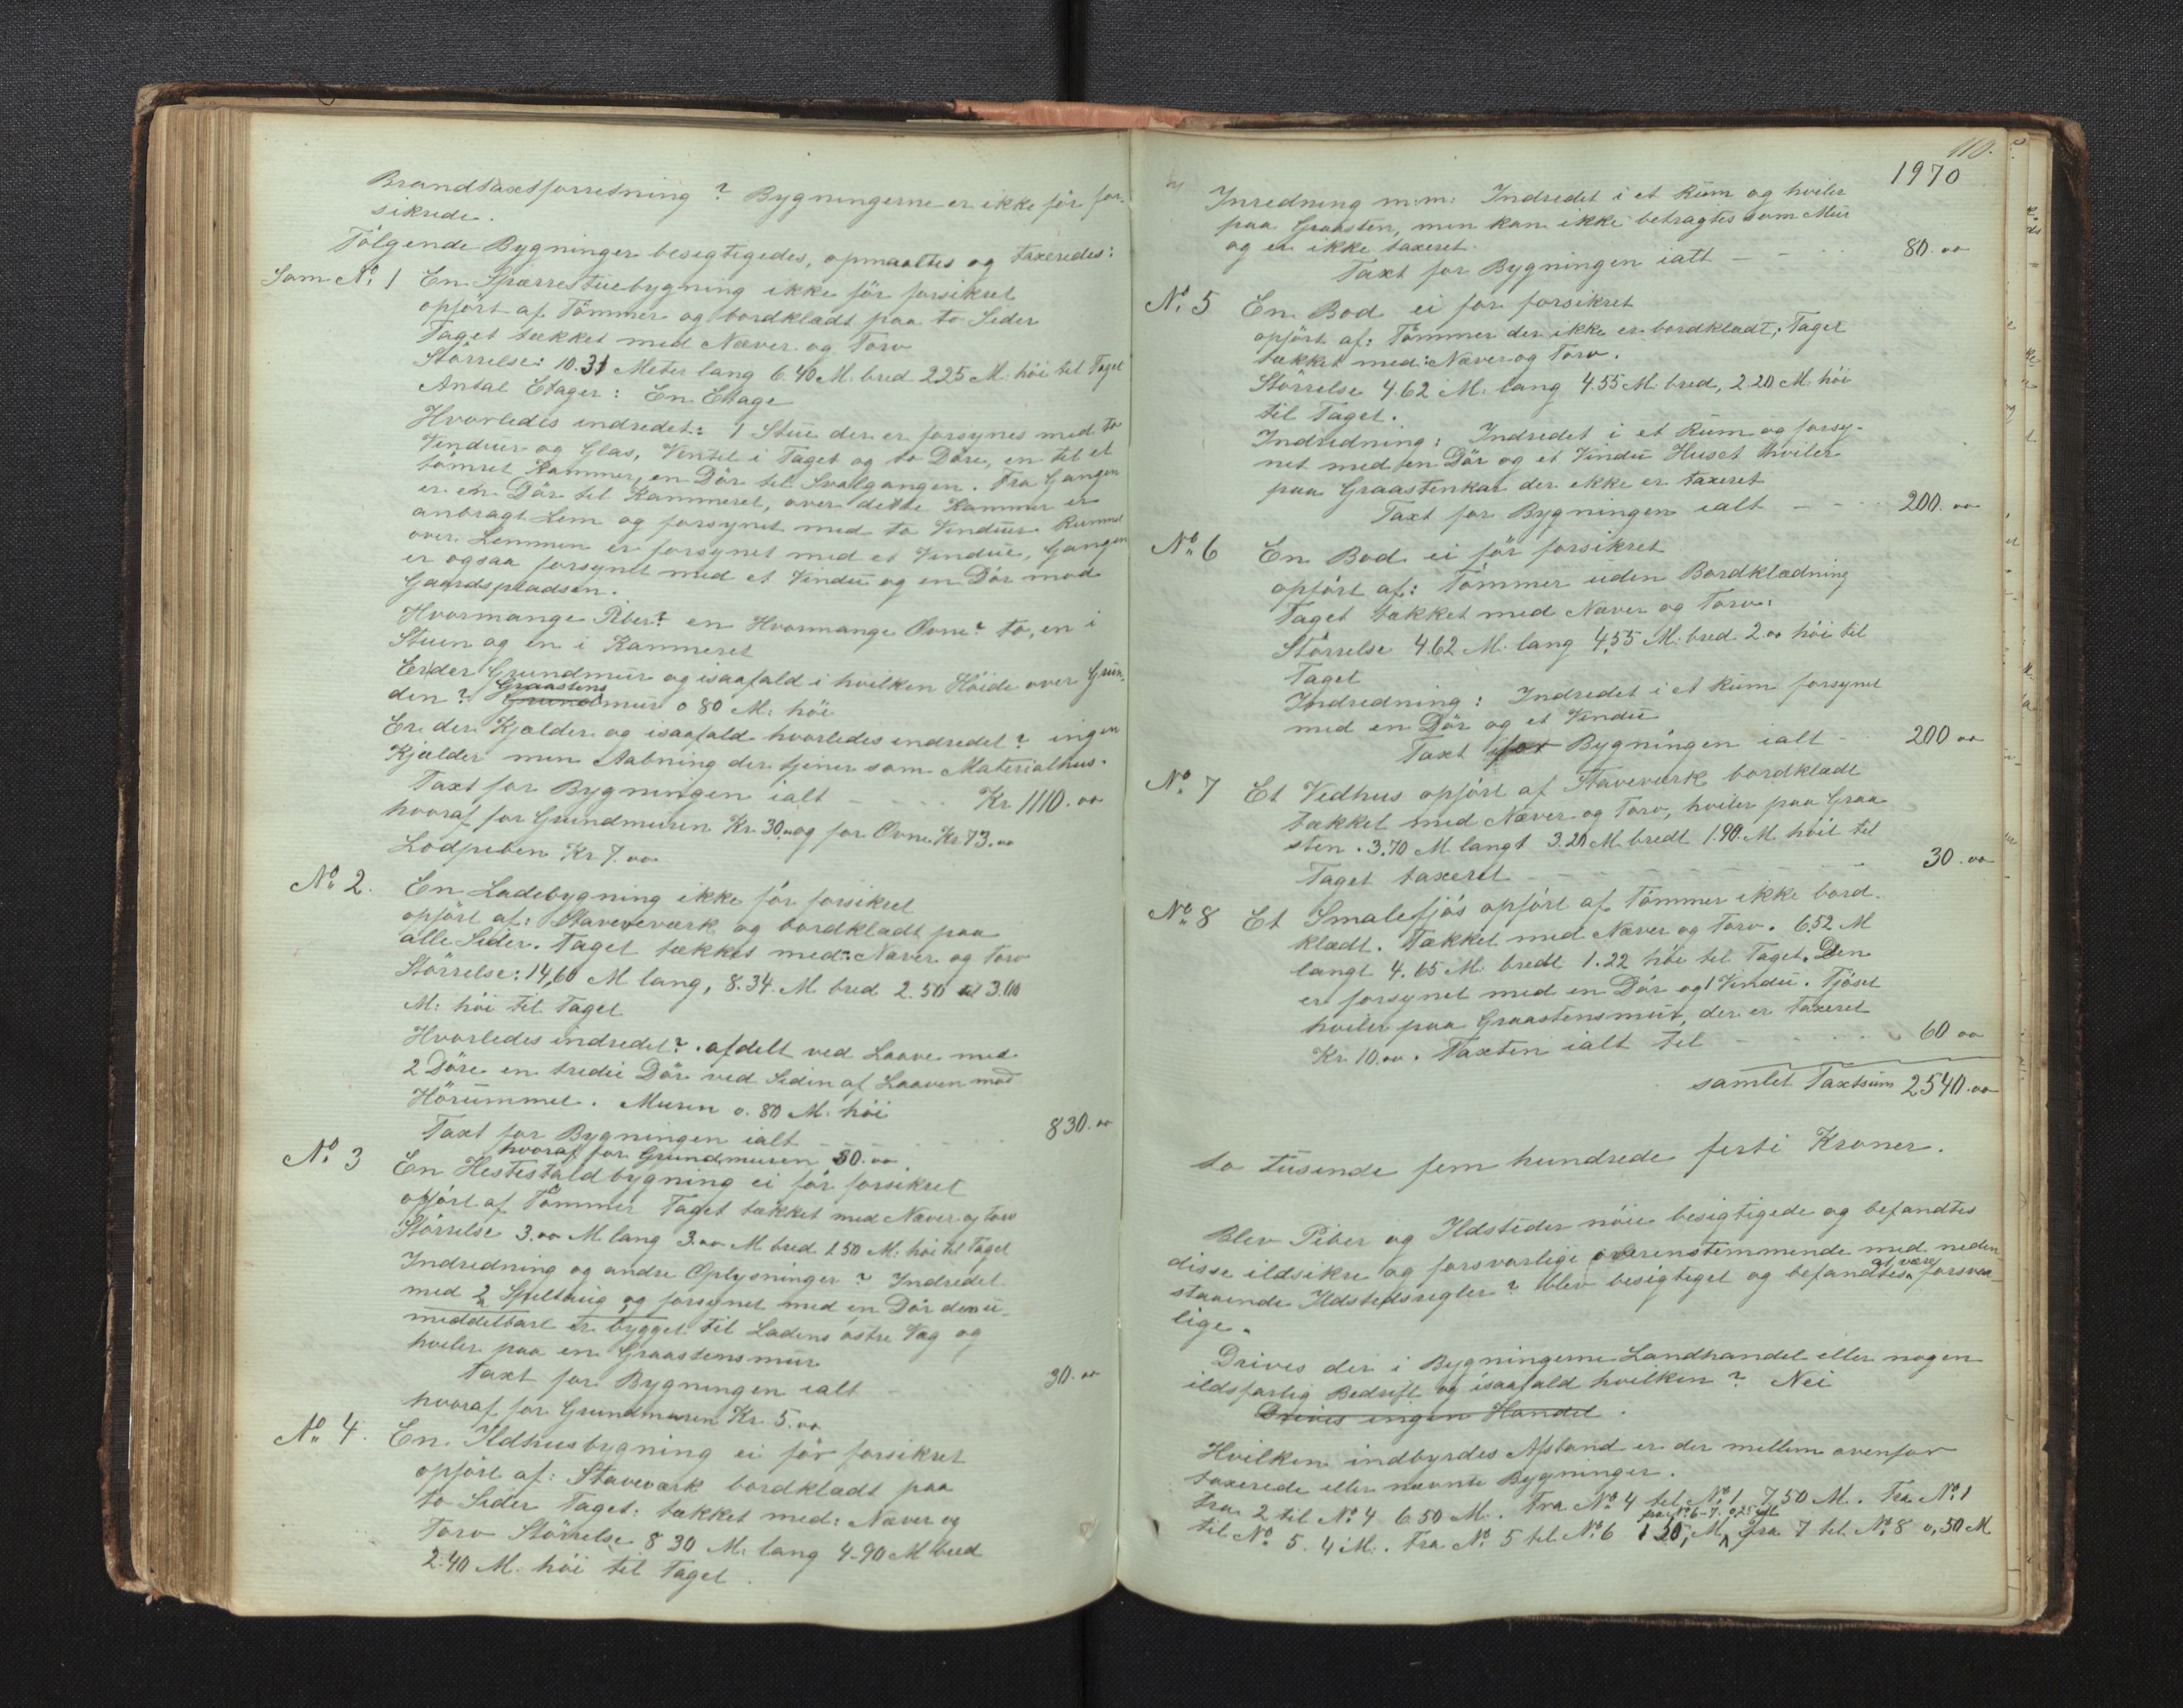 Brandtaxtforretning? Bygningerne er ikke för for-
sikrede.
Fölgende Bygninger besigtigedes, opmaaltes og taxeredes:
Som No. 1 En Spærrestuebygning ikke för forsikret
opfört af Tömmer og bordklædt paa to Sider
Taget tækket med Næver og Torv
Störrelse: 10.31 Meter lang 6.40 M. bred 2.25 M. höi til Taget
Antal Etager: En Etage
Hvorledes indredet: 1 Stue der er forsynes med to
Vinduer og Glas, Ventil i Taget og to Döre, en til et
tömret Kammer, en Dör til Svalgangen. Fra Gangen
er en Dör til Kammeret, over dette Kammer er
anbragt Lem og forsynet med to Vinduer Rummet
over Lemmen er forsynet med et Vindue, Gangen
er ogsaa forsynet med et Vindu og en Dör mod
Gaardspladsen.
Hvormange Piber? en Hvormange Ovne? to, en i
Stuen og en i Kammeret
Er der Grundmur og isaafald i hvilken Höide over Grun-
den? Graastens Grundmur 0 80 M: höi
Er der Kjælder og isaafald hvorledes indredet? ingen
Kjælder men Aabning der tjener som Materialhus.
Taxt for Bygningen ialt - - - Kr 1110.00
hvoraf for Grundmuren Kr. 30.00 og for Ovne Kr 73.00
Lodpiben Kr 7.00
No. 2. En Ladebygning ikke för forsikret
opfört af: Staveværk og bordklædt paa
alle Sider. Taget tækket med: Næver og Torv
Störrelse: 14,60 M lang, 8.34 M bred 2.50 til 3.00
M: höi til Taget
Hvorledes indredet? afdelt ved Laave med
2 Döre en tredie Dör ved Siden af Laaven mod
Hörummet. Muren 0.80 M. höi
Taxt for Bygningen ialt - - - 830.00
hvoraf for Grundmuren 30.00
No. 3 En Hestestaldbygning ei för forsikret
opfört af Tömmer Taget tækket med Næver og torv
Störrelse 3.00 M lang 3.00 M bred 1 50 M. höi til Taget
Indredning og andre Oplysninger? Indredet
med 2 Spiltaug og forsynet med en Dör den u-
middelbart er bygget til Ladens östre Væg og
hviler paa en Graastensmur
Taxt for Bygningen ialt - 30.00
hvoraf for Grundmuren Kr 5.00
No. 4. En Ildhusbygning ei för forsikret
opfört af: Staveværk bordklædt paa
to Sider Taget: tækket med: Næver og
Torv Störrelse 8 30 M: lang 4.90 M bred
2.40 M. höi til Taget.
110.
1970
Inredning m:m: Indredet i et Rum og hviler
paa Graasten, men kan ikke betragtes som Mur
og er ikke taxeret.
Taxt for Bygningen ialt - - 80.00
No. 5 En Bod ei for forsikret
opfört af: Tömmer der ikke er bordklædt, Taget
tækket med: Næver og Torv.
Störrelse 4.62 M. lang 4.55 M. bred, 2.20 M. höi
til Taget.
Indredning: Indredet i et Rum og forsy-
net med en Dör og et Vindu Huset hviler
paa Graastenkar der ikke er taxeret
Taxt for Bygningen ialt - - 200.00
No. 6 En Bod ei för forsikret
opfört af: Tömmer uden Bordklædning
Taget tækket med Næver og Torv:
Störrelse 4.62 M. lang 4.55 M. bred 2.00 höi til
Taget
Indredning: Indredet i et Rum forsynet
med en Dör og et Vindu
Taxt for Bygningen ialt - 200 00
No. 7 Et Vedhus opfört af Staveværk bordklædt
tækket med Næver og Torv, hviler paa Graa
sten. 3.70 M langt 3.20 M bredt 1.90. M höit til
Taget taxeret - - - 30.00
No. 8 Et Smalefjös opfört af Tömmer ikke bord-
klædt. Tækket med Næver og Torv. 6.52 M
langt 4.65 M. bredt 1.22 höi til Taget. Den
er forsynet med en Dör og 1 Vindu. Fjöset
hviler paa Graastensmur, der er taxeret
Kr. 10.00. Taxten ialt til - - - 60 00
samlet Taxtsum 2540.00
to tusende fem hundrede förti Kroner.
Blev Piber og Ildsteder nöie besigtigede og befandtes
disse ildsikre og forsvarlige overensstemmende med neden
staaende Ildstedsregler? blev besigtiget og befandtes at være forsvar-
lige.
Drives der i Bygningerne Landhandel eller nogen
ildsfarlig Bedrift og isaafald hvilken? Nei
Drives ingen Handel.
Hvilken indbyrdes Afstand er der mellem ovenfor
taxerede eller nævnte Bygninger.
Fra 2 til No. 4 6.50 M. Fra No. 4 til No. 1 7,50 M. Fra No. 1
til No. 5. 4 M. Fra No. 5 til No. 6 1 20, M, fra No. 6-7. 0,25 M. Fra 7 til No. 8 0,50 M